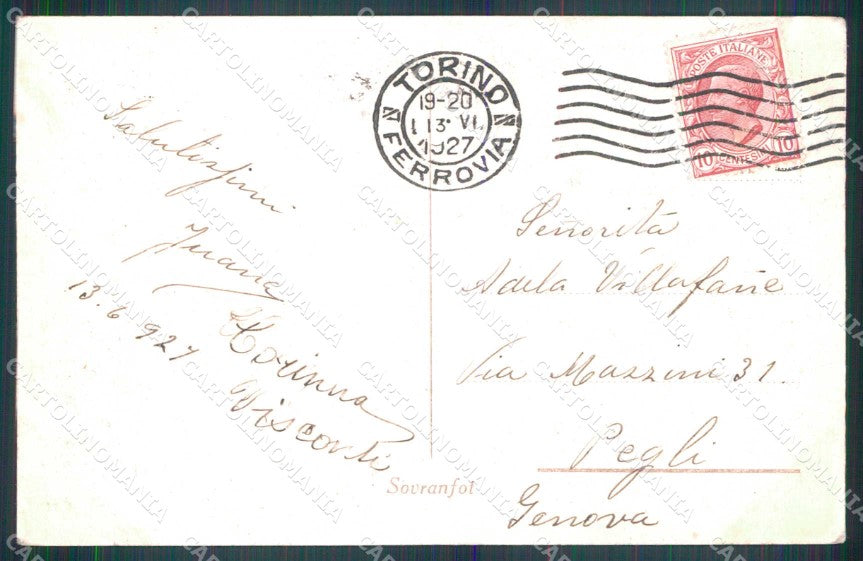 TORINO
19-20
13 VI
1927
FERROVIA
POSTE ITALIANE
10 CENTESIMI 10
Salutissimi
Juana
13.6.927
Corinna
Visconti
Senorita
Adela Villafañe
Via Mazzini 31.
Pegli
Genova
Sovranfol
CARTOLINOMANIA